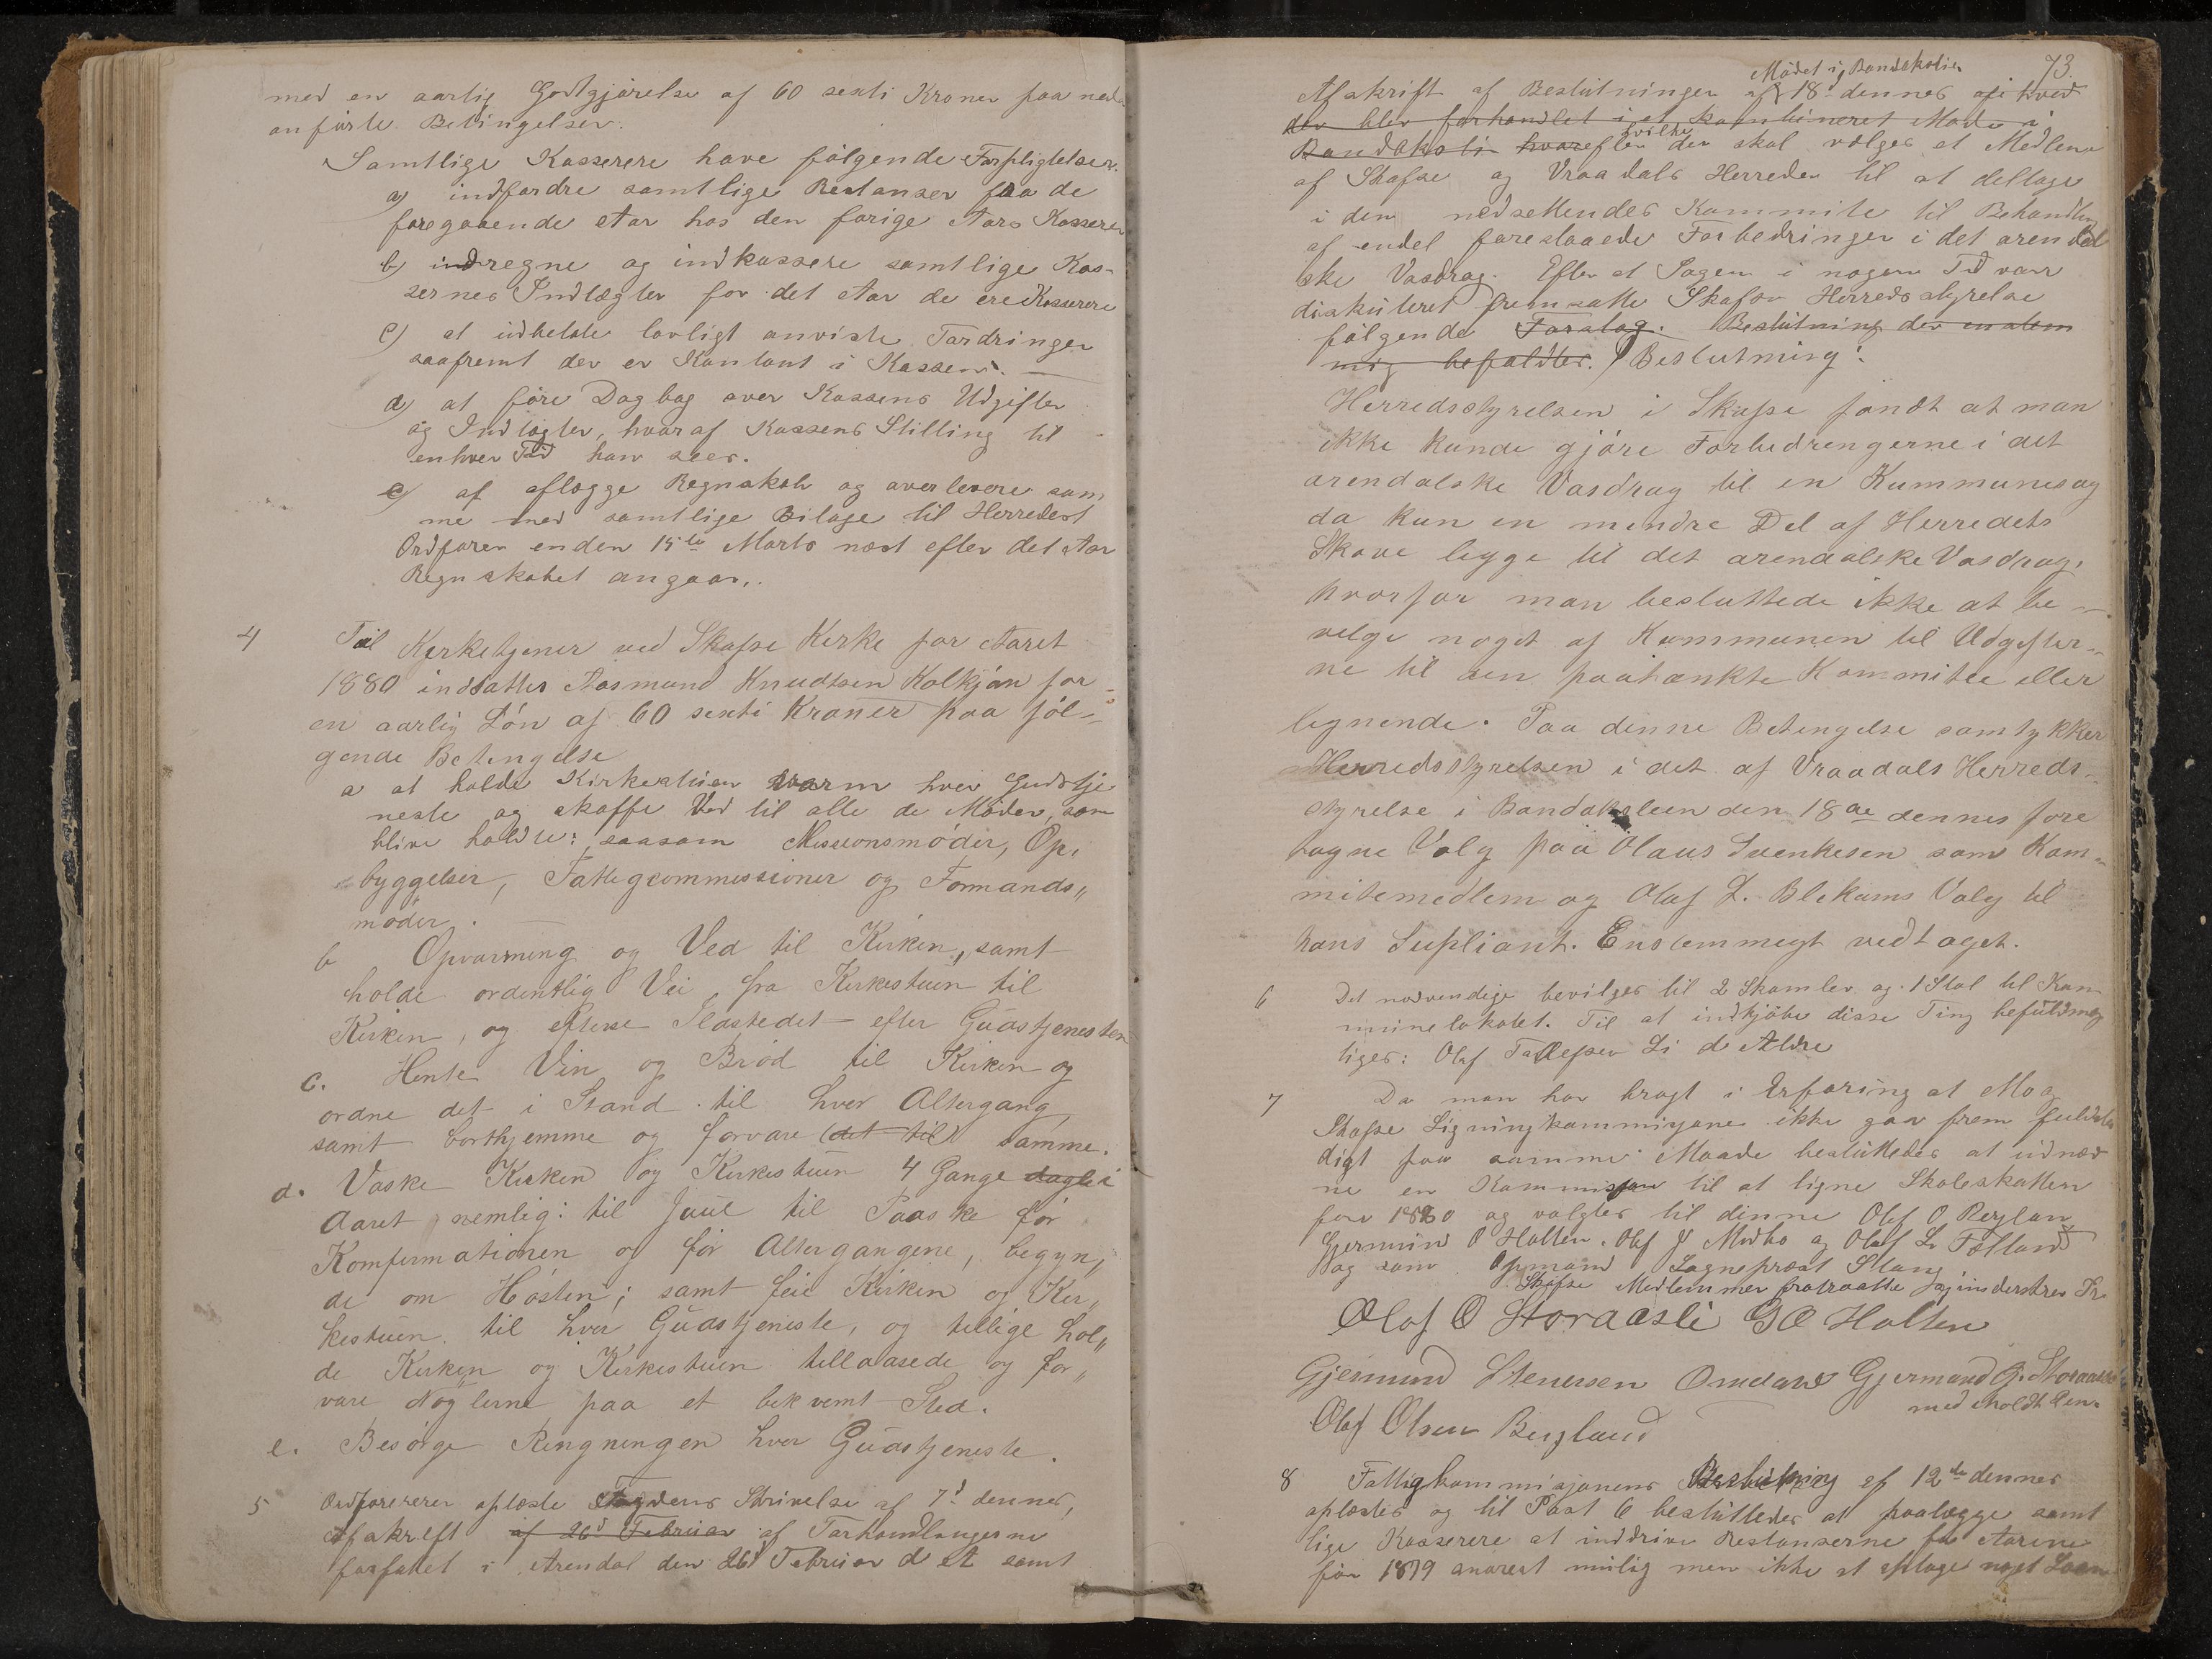 med en aarlig Godtgjørelse af 60 sexti Kroner paa ned-
anførte Betingelser.
Samtlige Kasserere have følgende Forpligtelser.
a) indfordre samtlige Restanser fra de
foregaaende Aar hos den forige Aars Kasserer
b) indregne og indkassere samtlige Kas-
sernes Indtægter for det Aar de ere Kasserere
c) at udbetale lovligt anviste Fordringer
saafremt der er Kontant i Kassen. —
d) at føre Dagbog over Kassens Udgifter
og Indtægter, hvoraf Kassens Stilling til
enhver Tid kan sees.
e) af aflægge Regnskab og overlevere sam,
me med samtlige Bilage til Herredets
Ordfører enden 15de Marts næst efter det Aar
Regnskabet angaar,.
4 Til Kirketjener ved Skafse Kirke for Aaret
1880 indsattes Aasmund Knudtsen Kolkjøn for
en aarlig Løn af 60 sexti Kroner paa føl-
gende Betengelse
a at holde Kirkestuen varm hver Gudstje
neste og skaffe Ved til alle de Møder, som
blive holdte: saasom Messionsmøder, Op,
byggelser, Fattegcommessioner og Formands„
møder. —
b Opvarming og Ved til Kirken, samt
holde ordentlig Vei fra Kirkestuen til
Kirken, og efterse Ildstedet efter Gudstjenesten
c. Hente Vin og Brød til Kirken og
ordne det i Stand til hver Altergang
samt borthjemme og forvare (det til) samme.
d. Vaske Kirken og Kirkestuen 4 Gange dagle i
Aaret nemlig: til Juul til Paaske før
Komfirmationen og før Altergangene, begyn,
de om Høsten; samt feie Kirken og Kir„
kestuen til hver Gudstjeneste, og tellige hol„
de Kirken og Kirkestuen tellaasede og for„
vare Nøglerne paa et bekvemt Sted.
e. Besørge Ringningen hver Gudstjeneste.
5 Ordførerer oplæste Fogdens Skrivelse af 7d dennes,
Afskreft af 26d Februar af Forhandlingerne
forfattet i Arendal den 26d Februar d A samt
73.
Mødet i Bandaksli
Afskrift af Beslutninger af 18. dennes afi hved
der blev forhandlet i et kombineret Møde i
hvilke
Bandaksli hvorefter der skal vælges et Medlem
af Skafse og Vraadals Herreder til at deltage
i den nedsettendes Kommite til Behandling
af endel foreslaaede Forbedringer i det arendal
ske Vasdrag. Efter at Sagen i nogen Tid var
diskuteret fremsatte Skafse Herredsstyrelse
følgende Forslag. Beslutning der enstem
mig befaldtes. Beslutning:
Herredsstyrelsen i Skafse fandt at man
ikke kunde gjøre Forbedrengerne i det
arendalske Vasdrag til en Kummunesag
da kun en mindre Del af Herredets
Skove legge til det arendalske Vasdrag,
hvorfor man besluttede ikke at be-
velge noget af Kommunen til Udgifter-
ne til den paatænkte Kommitee eller
lignende. Paa denne Betengelse samtykker
Herredsstyrelsen i det af Vraadals Herreds-
styrelse i Bandaksleen den 18de dennes fore
tagne Valg paa Olaus Svenkesen som Kom-
mitemedlem og Olaf L. Blekums Valg til
hans Supliant. Enstemmegt vedtaget.
6 Det nødvendige bevilges til 2 Skamler og 1 Stol til Kom
munelokalet. Til at indkjøbe disse Ting befuldmæg
tiges: Olaf Tallefsen Li d Ældre
7 Da man har bragt i Erfaring at Mo og
Skafse Ligningkommisjone ikke gaa frem fuldstæn
digt paa samme Maade besluttedes at udnæv
ne en Kommisjon til at ligne Skoleskatten
for 1880 og valgtes til dinne Olaf O Berglan
Gjermund O Holten. Olaf J Midbo og Olaf L. Fælland
og som Opmand Sogneprest Stang
Skafse Medlemmer fratraatte
Olaf O Storaasli G O Holten
Gjermund Stenersen Omdal Gjermund G. Storaasli
med iholdt Pen.
Olaf Olsen Berglaud
8 Fattigkommisjonens Beslutning af 12te dennes
oplæstes og til Post 6 besluttedes at paalægge samt
lige Kasserere at inddrive Restanserne for Aarene
før 1879 snarest mulig men ikke at optage noget Laan